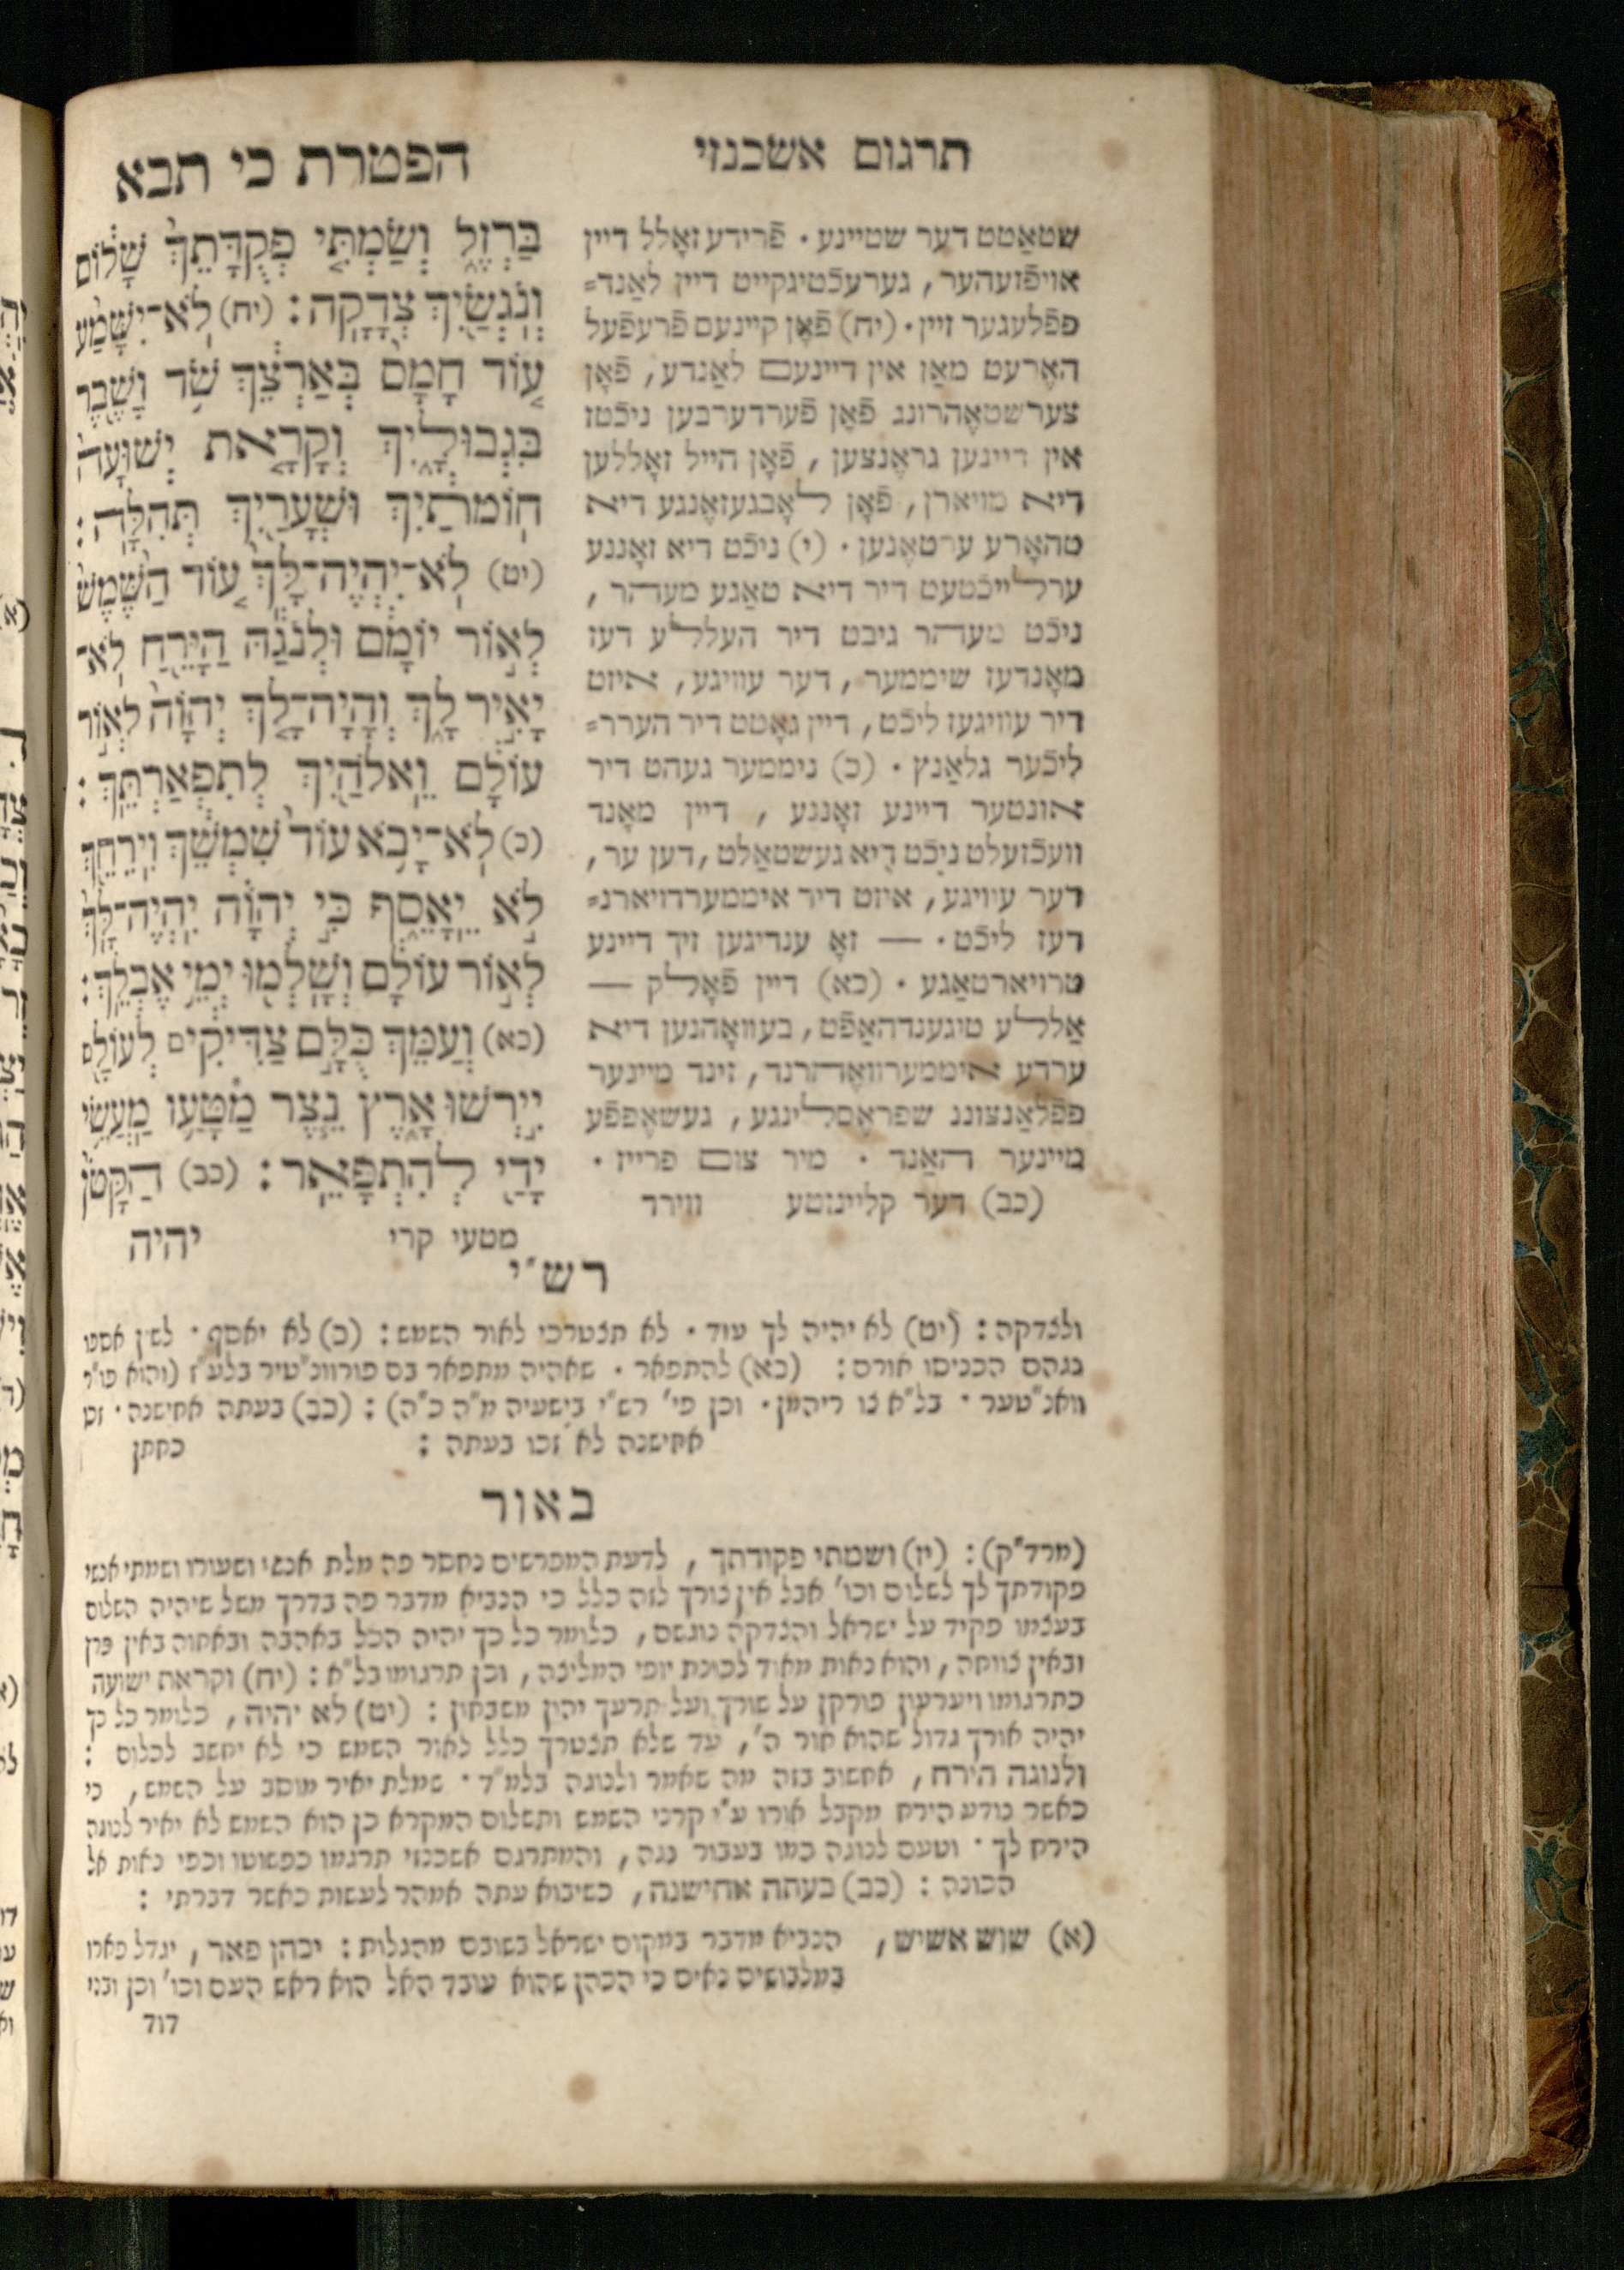 תרגום אשכנזי
הפטרת כי תבא
שטאַטט דער שטיינע · פֿרידע זאָלל דיין
אויפֿזעהער, גערעכֿטיגקייט דיין לאַנד=
פפֿלעגער זיין · (יח) פֿאָן קיינעם פֿרעפֿעל
האָרעט מאַן אין דיינעם לאַנדע, פֿאָן
צערשטאָהרונג פֿאָן פֿערדערבען ניכֿטז
אין דיינען גראֶנצען, פֿאָן הייל זאָללען
דיא מויארן, פֿאָן לאָבגעזאָנגע דיא
טהאָרע ערטאֶנען · (י) ניכֿט דיא זאָננע
ערלייכֿטעט דיר דיא טאַגע מעהר,
ניכֿט מעהר גיבט דיר העללע דעז
מאָנדעז שיממער, דער עוויגע, איזט
דיר עוויגעז ליכֿט, דיין גאָטט דיר הערר=
ליכֿער גלאַנץ · (כ) ניממער געהט דיר
אונטער דיינע זאָננע, דיין מאָנד
וועכֿזעלט ניכֿט דיא געשטאַלט, דען ער,
דער עוויגע, איזט דיר איממערדויארנ=
דעז ליכֿט · — זאָ ענדיגען זיך דיינע
טרויארטאַגע · (כא) דיין פֿאָלק —
אַללע טיגענדהאַפֿט, בעוואָהנען דיא
ערדע איממערוואֶהרנד, זינד מיינער
פפֿלאַנצונג שפראֶסלינגע, געשאֶפפֿע
מיינער האַנד · מיר צום פרייז ·
(כב) דער קליינזטע ווירד
בַּרְזֶל וְשַׂמְתִּי פְקֻדָּתֵךְ שָׁלוֹם
וְנֹגְשַׂיִךְ צְדָקָה : (יח) לֹא־יִשָּׁמַע
עוֹד חָמָס בְּאַרְצֵךְ שֹׁד וָשֶׁבֶר
בִּגְבוּלָיִךְ וְקָרָאת יְשׁוּעָה
חוֹמֹתַיִךְ וּשְׁעָרַיִךְ תְּהִלָּה :
(יט) לֹא־יִהְיֶה־לָּךְ עוֹד הַשֶּׁמֶשׁ
לְאוֹר יוֹמָם וּלְנֹגַהּ הַיָּרֵחַ לֹא־
יָאִיר לָךְ וְהָיָה־לָךְ יְהוָה לְאוֹר
עוֹלָם וֵאלֹהַיִךְ לְתִפְאַרְתֵּךְ :
(כ) לֹא־יָבֹא עוֹד שִׁמְשֵׁךְ וִירֵחֵךְ
לֹא יֵאָסֵף כִּי יְהוָה יִהְיֶה־לָּךְ
לְאוֹר עוֹלָם וְשָׁלְמוּ יְמֵי אֶבְלֵךְ :
(כא) וְעַמֵּךְ כֻּלָּם צַדִּיקִים לְעוֹלָם
יִירְשׁוּ אָרֶץ נֵצֶר מַטָּעַו מַעֲשֵׂי
יָדַי לְהִתְפָּאֵר : (כב) הַקָּטֹן
מטעי קרי יהיה
רש״י
ולצדקה : (יט) לא יהיה לך עוד · לא תצטרכי לאור השמש : (כ) לא יאסף · לשון אספו
נגהם הכניסו אורם : (כא) להתפאר · שאהיה מתפאר בם פורוונ״טיר בלע״ז (והוא פו״ר
וואנ״טער · בל״א צו ריהמן · וכן פי׳ רש״י בישעיה מ״ה כ״ה) : (כב) בעתה אחישנה · זכו
אחישנה לא זכו בעתה : כחתן
באור
(מרד״ק) : (יז) ושמתי פקודתך, לדעת המפרשים נחסר פה מלת אנשי ושעורו ושמתי אנשי
פקודתך לך לשלום וכו׳ אבל אין צורך לזה כלל כי הנביא מדבר פה בדרך משל שיהיה השלום
בעצמו פקיד על ישראל והצדקה נוגשם, כלומר כל כך יהיה הכל באהבה ובאחוה באין פרץ
ובאין צווחה, והוא נאות מאוד לכוונת יופי המליצה, וכן תרגומו בל״א : (יח) וקראת ישועה
כתרגומו ויערעון פורקן על שורך ועל תרעך יהון משבחין : (יט) לא יהיה, כלומר כל כך
יהיה אורך גדול שהוא אור ה׳, עד שלא תצטרך כלל לאור השמש כי לא יחשב לכלום :
ולנוגה הירח, אחשוב בזה מה שאמר ולנוגה בלמ״ד · שמלת יאיר מוסב על השמש, כי
כאשר נודע הירח מקבל אורו ע״י קרני השמש ותשלום המקרא כן הוא השמש לא יאיר לנוגה
הירח לך · וטעם לנוגה כמו בעבור נגה, והמתרגם אשכנזי תרגמו כפשוטו וכפי נאות אל
הכונה : (כב) בעתה אחישנה, כשיבוא עתה אמהר לעשות כאשר דברתי :
(א) שוש אשיש, הנביא מדבר במקום ישראל בשובם מהגלות : יכהן פאר, יגדל פארו
במלבושים נאים כי הכהן שהוא עובד האל הוא ראש העם וכו׳ וכן ובני
דוד